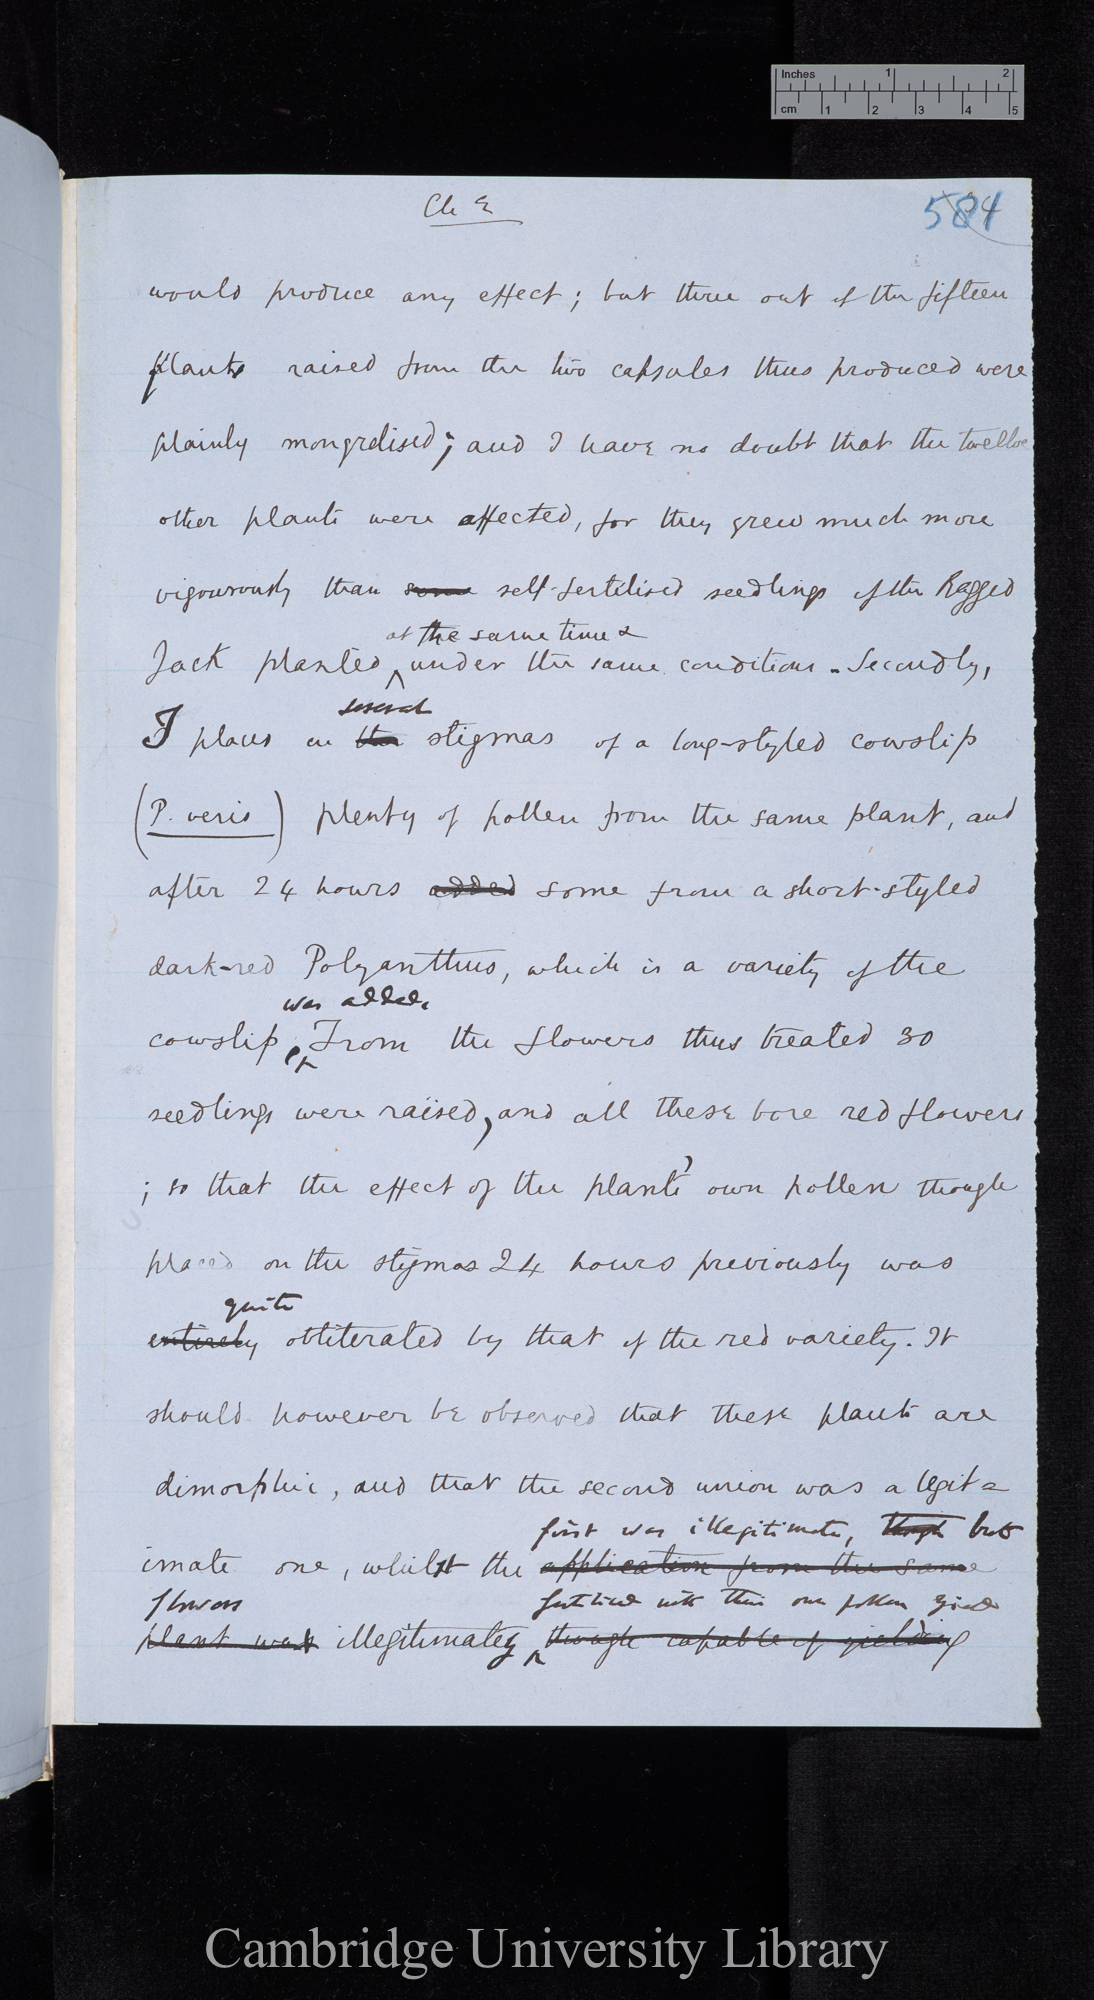 Inches 1 2
cm 1 2 3 4 5
Ch
584
would produce any effect; but three out of the fifteen
plants raised from the two capsules thus produced were
plainly mongrelised; and I have no doubt that the twelve
other plants were affected, for they grew much more
vigourously than some self-fertilised seedlings of the Ragged
at the same time &
Jack planted, under the same conditions. Secondly,
several
I placed on the stigmas of a long-styled cowslip
(P. veris) plenty of pollen from the same plant, and
after 24 hours added some from a short-styled
dark-red Polyanthus, which is a variety of the
was added.
cowslip, From the flowers thus treated 30
seedlings were raised, and all these bore red flowers
; so that the effect of the plants' own pollen though
placed on the stigmas 24 hours previously was
quite
entirely obliterated by that of the red variety. It
should however be observed that these plants are
dimorphic, and that the second union was a legit=
first was illegitimate, though but
imate one, whilst the application from the same
flowers
fertilised with their own pollen yield
plant was illegitimately, though capable of yielding
Cambridge University Library